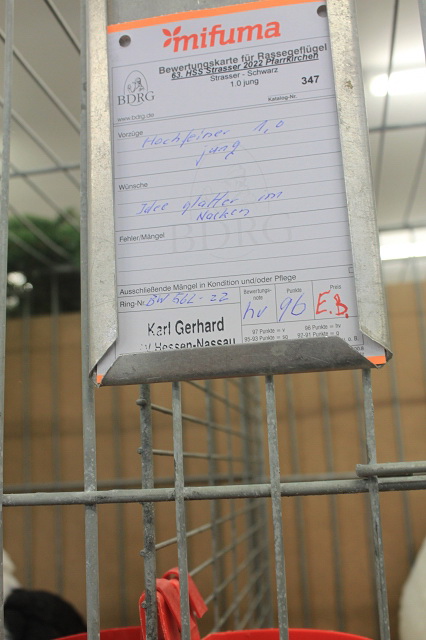 mifuma
Bewertungskarte für Rassegeflügel
63. HSS Strasser 2022 Pfarrkirchen
Strasser - Schwarz
1.0 jung
347
Katalog-Nr.
BDRG
www.bdrg.de
Vorzüge
Hochfeiner 1,0
jung
Wünsche
Idee glatter im
Nacken
BDRG
Fehler/Mängel
Ausschließende Mängel in Kondition und/oder Pflege
Ring-Nr. BW 562-22
Bewertungs-
note
hv
Punkte
96
Preis
E.B.
Karl Gerhard
LV Hessen-Nassau
97 Punkte = v
96 Punkte = hv